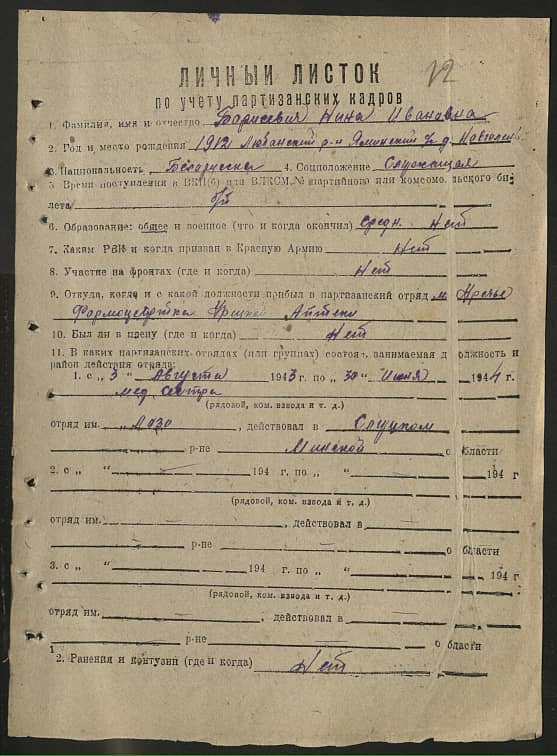 12
ЛИЧНЫЙ ЛИСТОК
по учету партизанских кадров
1. Фамилия, имя и отчество Борисевич Нина Ивановна
2. Год и место рождения 1912 Любанский р-н Яминский
3. Национальность Белоруска 4. Соцположение Служащая
5 Время поступления в ВКП(б) или ВЛКСМ, № партийного или комсомольского би-
лета б/п
6. Образование: общее и военное (что и когда окончил) средн. Нет
7. Каким РВК и когда призван в Красную Армию Нет
8. Участие на фронтах (где и когда) Нет
9. Откуда, когда и с какой должности прибыл в партизанский отряд м. Уречье
Аптеки
10. Был ли в плену (где и когда) Нет
11. В каких партизанских отрядах (или группах) состоял, занимаемая должность и
район действия отряда:
1. с „ 3 “ Августа 1943 г. по „ 30 “ Июня 1944 г.
мед Сестра
(рядовой, ком. взвода и т. д.)
отряд им. Лазо, действовал в Слуцком
р-не Минской области
2. с „ “ 194 г. по „ “ 194 г
(рядовой, ком. взвода и т. д.)
отряд им. , действовал в
р-не области
3. с „ “ 194 г. по „ “ 194 г
(рядовой, ком. взвода и т. д.)
отряд им. , действовал в
р-не области
2. Ранения и контузии (где и когда) Нет